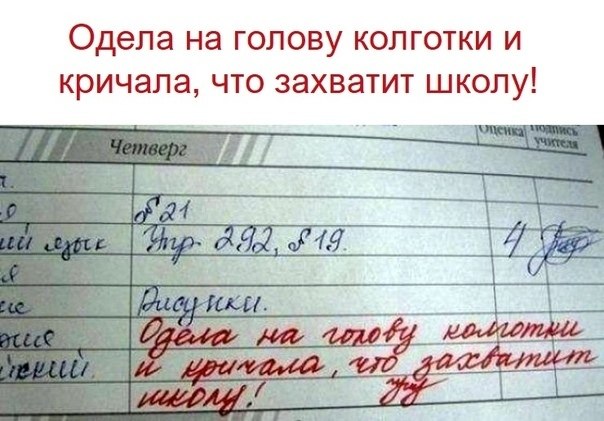 Одела на голову колготки и
кричала, что захватит школу!
Оценка Подпись
учителя
Четверг
§21
язык Упр. 292, §19. 4
Рисунки.
Одела на голову колготки
и кричала, что захватит
школу!